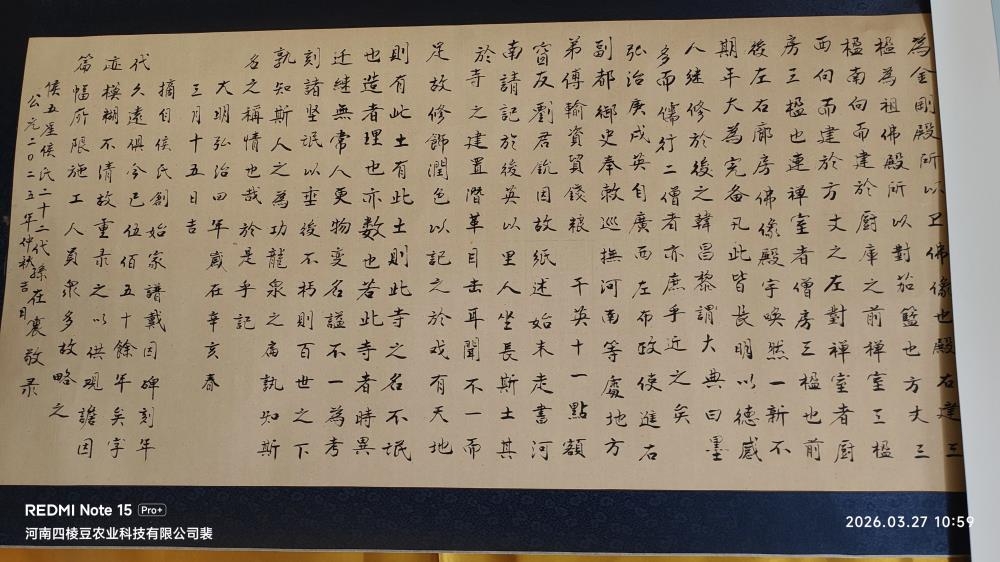 為金剛殿所以卫佛像也殿右建三
楹為祖佛殿所以對茄籃也方丈三
楹南向而建於厨庫之前禅室三楹
西向而建於方丈之左對禅室者厨
房三楹也連禅室者僧房三楹也前
後左右廊房佛像殿宇唤然一新不
期年大為完备凡此皆長明以德感
人继修於後之韓昌黎謂大典曰墨
多而儒行二僧者亦庶乎近之矣
弘治庚戌英自廣西左布政使進右
副都鄉史奉敕巡撫河南等處地方
弟傅輸資貿錢粮于英十一點額
窗友劉君銳因故纸述始末走書河
南請記於後英以里人坐長斯土其
於寺之建置潛革目击耳聞不一而
足故修飾潤色以記之於戏有天地
則有此土有此土則此寺之名不泯
也造者理也亦数也若此寺者時異
迁继無常人更物变名謚不一為考
刻諸坚珉以垂後不朽則百世之下
孰知斯人之為功龍泉之為孰知斯
名之稱情也哉於是乎記
大明弘治四年歲在辛亥春
三月十五日吉
摘自侯氏創始家譜戴因碑刻年
代久遠俱今已伍佰五十餘年矣字
迹模糊不清故重录之以供观瞻因
篇幅所限施工人員眾多故略之
侯五星侯氏二十二代孫在襄敬录
公元二0二五年仲秋吉日
REDMI Note 15 Pro+
河南四棱豆农业科技有限公司裴
2026.03.27 10:59